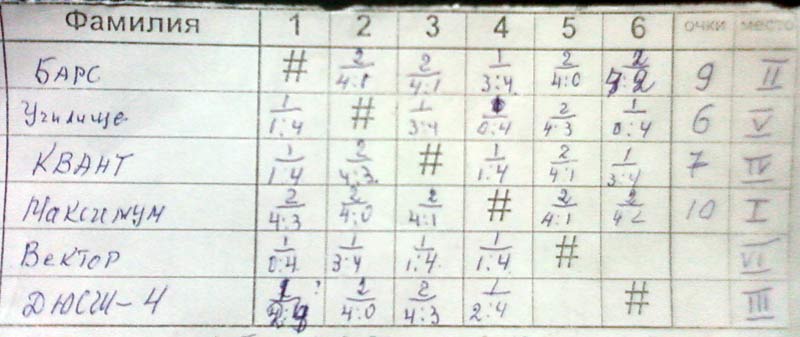 Фамилия 1 2 3 4 5 6 очки место
БАРС # 2/4:1 2/4:1 1/3:4 2/4:0 2 9 II
Училище 1/1:4 # 1/3:4 0:4 2/4:3 1/0:4 6 V
КВАНТ 1/1:4 2/4:3 # 1/1:4 2/4:1 1/3:4 7 IV
Максимум 2/4:3 2/4:0 2/4:1 # 2/4:1 2/4:2 10 I
Вектор 1/0:4 1/3:4 1/1:4 1/1:4 # VI
ДЮСШ-4 2/4:0 2/4:3 1/2:4 # III